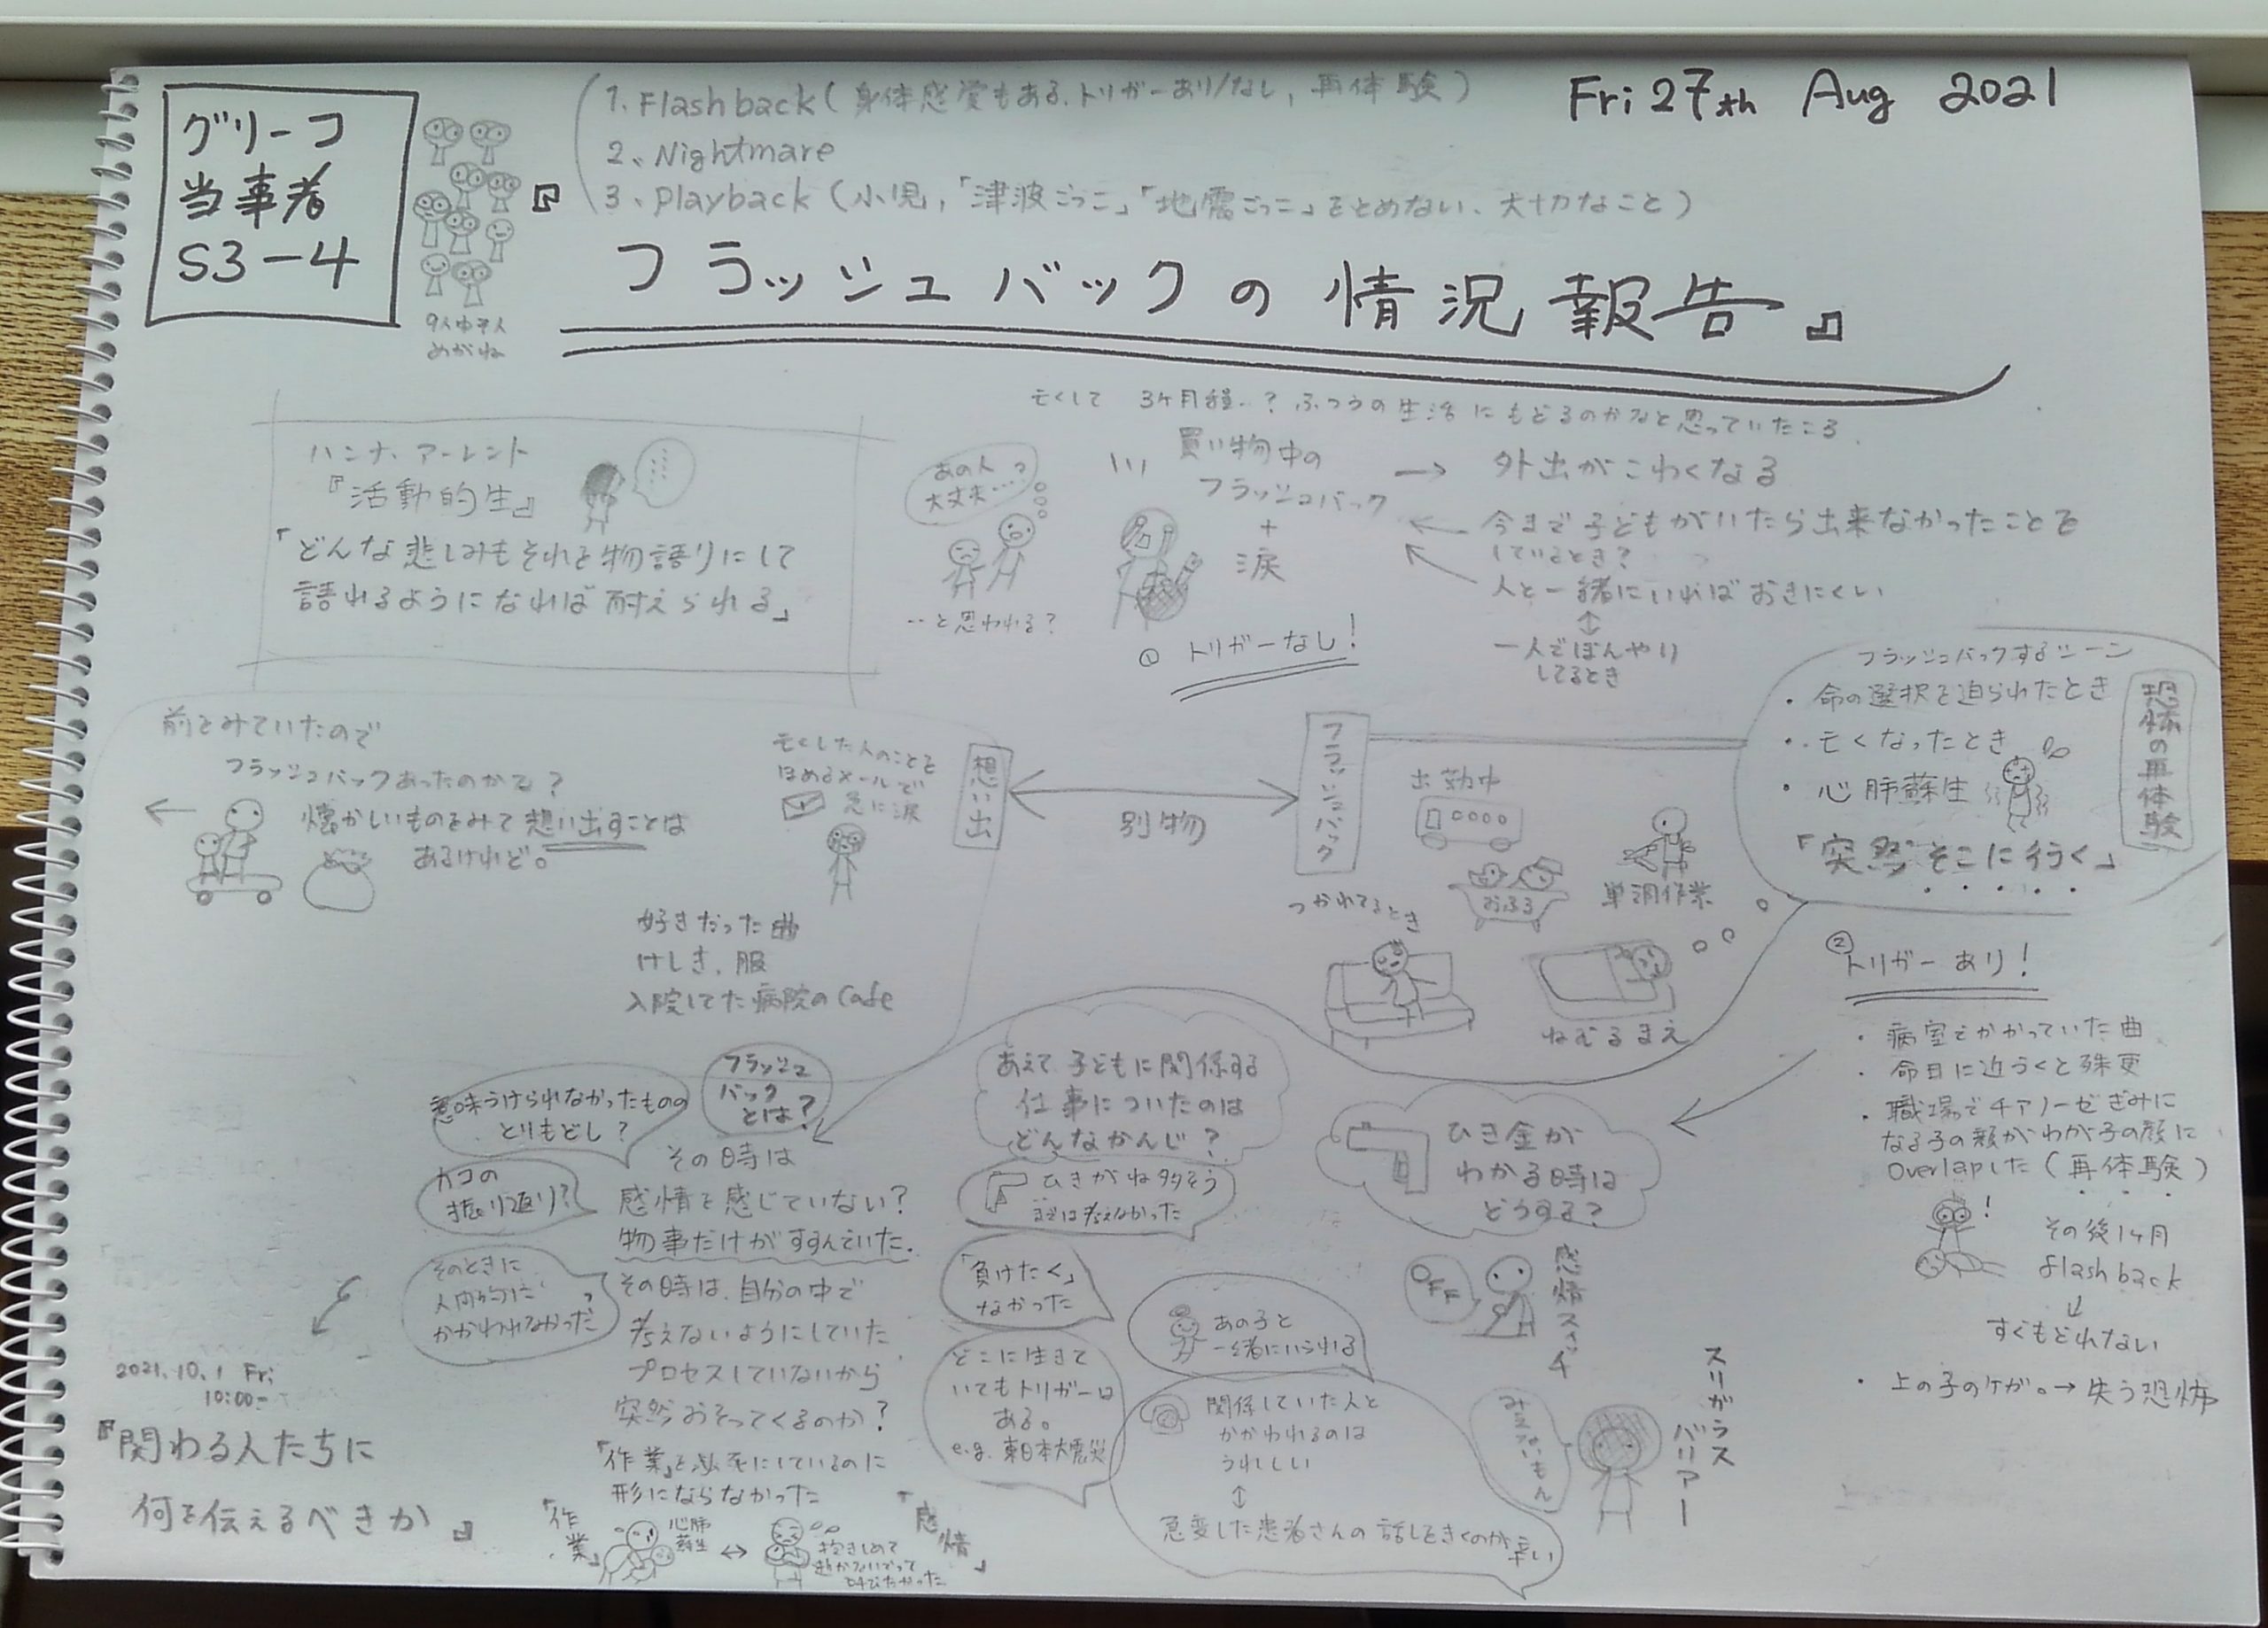 グリーフ
当事者
S3-4
9人中7人
めがね
1. Flashback (身体感覚もある、トリガーあり/なし, 再体験)
2. Nightmare
3. Playback (小児,「津波ごっこ」「地震ごっこ」をとめない、大切なこと)
Fri 27th Aug 2021
『フラッシュバックの情況報告』
ハンナ、アーレント
『活動的生』
「どんな悲しみもそれを物語りにして
語れるようになれば耐えられる」
亡くして 3ヶ月程..? ふつうの生活にもどるのかなと思っていたころ.
あの人
大丈夫....?
..と思われる?
買い物中の
フラッシュバック
+
涙
① トリガーなし!
→ 外出がこわくなる
今まで子どもがいたら出来なかったことを
しているとき?
人と一緒にいればおきにくい
↕
一人でぼんやり
してるとき
フラッシュバックするシーン
・命の選択を迫られたとき
・亡くなったとき
・心肺蘇生
「突然そこに行く」
恐怖の再体験
前をみていたので
フラッシュバックあったのかな?
懐かしいものをみて想い出すことは
あるけれど。
亡くした人のことを
ほめるメールで
急に涙
想い出
別物
フラッシュバック
好きだった曲
けしき、服
入院してた病院のCafe
出勤中
おふろ
単調作業
つかれてるとき
ねむるまえ
② トリガーあり!
・病室でかかっていた曲
・命日に近づくと殊更
・職場でチアノーゼぎみに
なる子の顔がわが子の顔に
Overlapした (再体験)
!
その後1ヶ月
flashback
↓
すぐもどれない
・上の子のケガ。→ 失う恐怖
フラッシュ
バック
とは?
意味づけられなかったものの
とりもどし?
カコの
振り返り?
そのときに
人間的に
かかわれなかった
その時は
感情を感じていない?
物事だけがすすんでいた.
その時は、自分の中で
考えないようにしていた
プロセスしていないから
突然おそってくるのか?
「作業」を必死にしているのに
形にならなかった
「作業」
心肺
蘇生
↔
抱きしめて
「感情」
あえて子どもに関係する
仕事についたのは
どんなかんじ?
ひきがね多そう
までは考えなかった
「負けたく」
なかった
どこに生きて
いてもトリガーは
ある。
e.g. 東日本大震災
あの子と
一緒にいられる
関係していた人と
かかわれるのは
うれしい
↕
急変した患者さんの話しをきくのが辛い
ひき金が
わかる時は
どうする?
OFF
感情スイッチ
みえないもん
スリガラス
バリアー
2021.10.1 Fri
10:00-
『関わる人たちに
何を伝えるべきか』